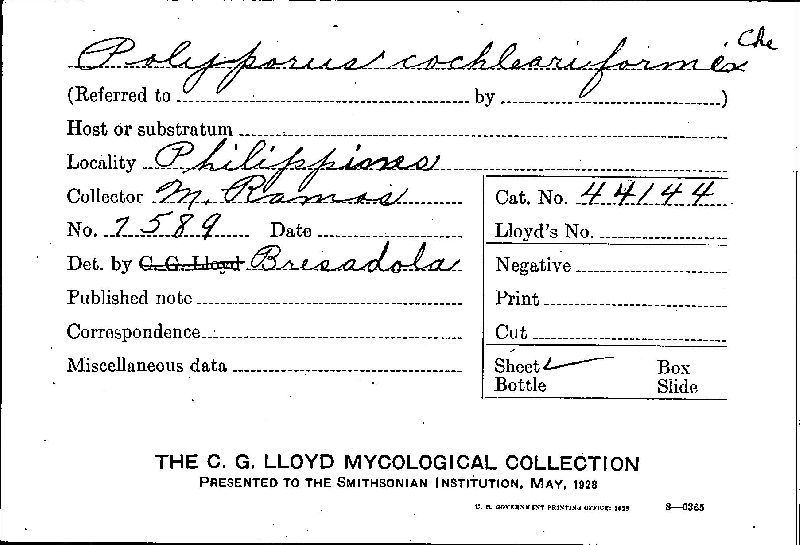 Polyporus cochleariformis Cke
(Referred to by )
Host or substratum
Locality Philippines
Collector M. Ramos
No. 7589 Date
Det. by C. G. Lloyd Bresadola
Published note
Correspondence
Miscellaneous data
Cat. No. 44144
Lloyd's No.
Negative
Print
Cut
Sheet ✓ Box
Bottle Slide
THE C. G. LLOYD MYCOLOGICAL COLLECTION
PRESENTED TO THE SMITHSONIAN INSTITUTION, MAY, 1928
U. S. GOVERNMENT PRINTING OFFICE: 1928 8—6365